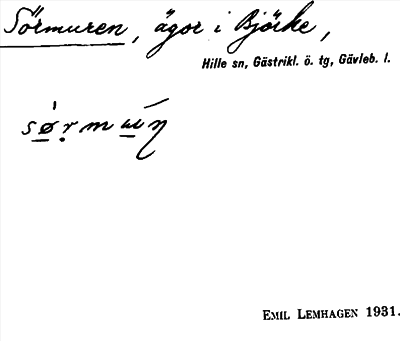 Sörmuren, ägor i Björke,
Hille sn, Gästrikl. ö. tg, Gävleb. l.
EMIL LEMHAGEN 1931.